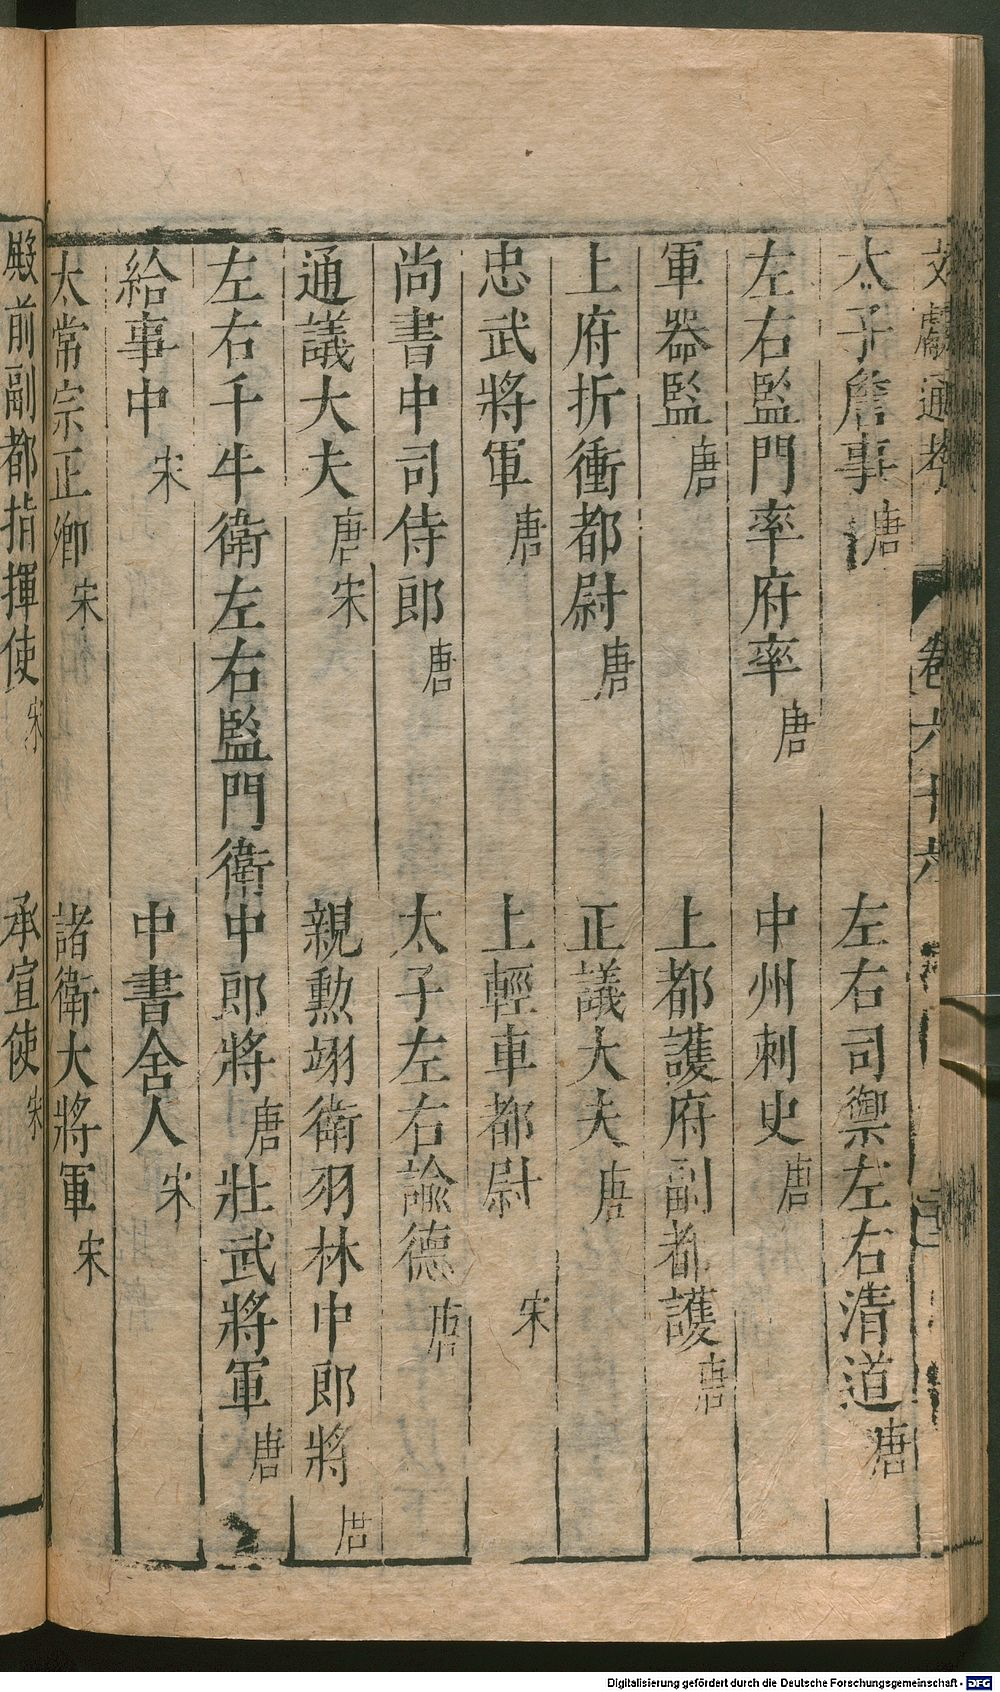 文獻通考 卷六十六
太子詹事 唐 左右司禦左右清道 唐
左右監門率府率 唐 中州刺史 唐
軍器監 唐 上都護府副都護 唐
上府折衝都尉 唐 正議大夫 唐
忠武將軍 唐 上輕車都尉 宋
尚書中司侍郎 唐 太子左右諭德 唐
通議大夫 唐宋 親勲翊衛羽林中郎將 唐
左右千牛衛左右監門衛中郎將 唐 壯武將軍 唐
給事中 宋 中書舍人 宋
太常宗正卿 宋 諸衛大將軍 宋
殿前副都指揮使 宋 承宣使 宋
Digitalisierung gefördert durch die Deutsche Forschungsgemeinschaft - DFG